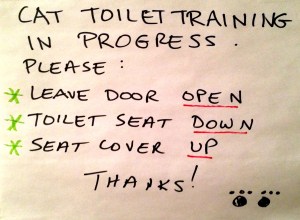 CAT TOILET TRAINING
IN PROGRESS.
PLEASE:
* LEAVE DOOR OPEN
* TOILET SEAT DOWN
* SEAT COVER UP
THANKS!